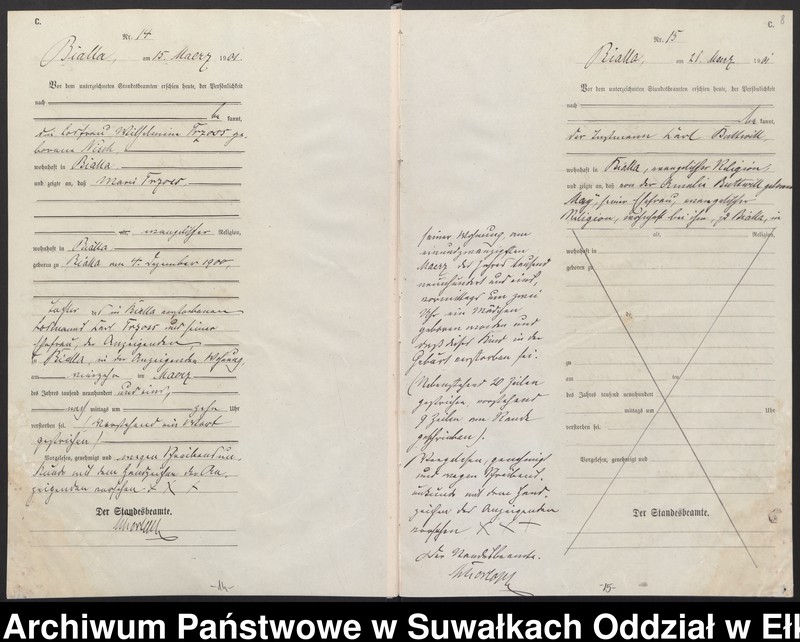 C.
Nr. 14
Bialla, am 15. Maerz 1901.
Vor dem unterzeichneten Standesbeamten erschien heute, der Persönlichkeit
nach
be kannt,
die Losfrau Wilhelmine Trzoss ge-
borene
wohnhaft in Bialla
und zeigte an, daß Marie Trzoss
evangelischer Religion,
wohnhaft in Bialla
geboren zu Bialla am 4. Dezember 1900,
Tochter des in Bialla verstorbenen
Losmanns Karl Trzoss und seiner
Ehefrau, der Anzeigenden,
zu Bialla, in der Anzeigenden Wohnung,
am vierzehn ten Maerz
des Jahres tausend neunhundert und eins,
nach mittags um zehn Uhr
verstorben sei. (Vorstehend ein Wort
gestrichen)
Vorgelesen, genehmigt und wegen Schreibensun-
kunde mit dem Handzeichen der An-
zeigenden versehen X X X
Der Standesbeamte.
-14-
C. 8
Nr. 15
Bialla, am 21. Maerz 1901
Vor dem unterzeichneten Standesbeamten erschien heute, der Persönlichkeit
nach
be kannt,
der Instmann Karl Buttwill,
wohnhaft in Bialla, evangelischer Religion,
und zeigte an, daß von der Amalie Buttwill geborenen
May, seiner Ehefrau, evangelischer
Religion, wohnhaft bei ihm, zu Bialla, in
alt, Religion,
wohnhaft in
geboren zu
de
zu
am ten
des Jahres tausend neunhundert
mittags um Uhr
verstorben sei.
Vorgelesen, genehmigt und
Der Standesbeamte.
seiner Wohnung am
einundzwanzigsten
Maerz des Jahres tausend
neunhundert und eins,
vormittags um zwei
Uhr ein Mädchen
geboren worden und
daß dieses Kind in der
Geburt verstorben sei.
(Nebenstehend 20 Zeilen
gestrichen, vorstehend
9 Zeilen am Rande
geschrieben).
Vorgelesen, genehmigt
und wegen Schreibens-
unkunde mit dem Hand-
zeichen des Anzeigenden
versehen X X +
Der Standesbeamte.
-15-
Archiwum Państwowe w Suwałkach Oddział w Eł